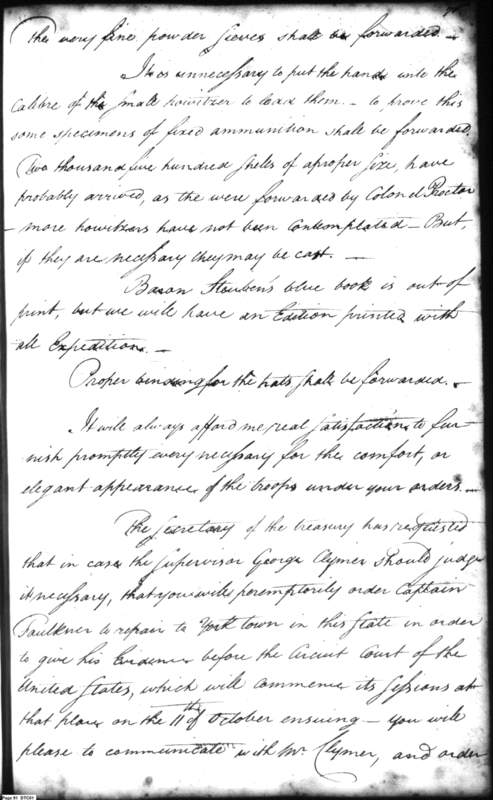 The very fine powder Sieves shall be forwarded. —
It is unnecessary to put the hand into the
Calibre of the small howitzer to load them. — to prove this
some specimens of fixed ammunition shall be forwarded.
Two thousand five hundred shells of a proper size, have
probably arrived, as the were forwarded by Colonel Proctor
— more howitzers have not been Contemplated — But,
if they are necessary they may be cast. —
Baron Steuben's blue book is out of
print, but we will have an Edition printed with
all Expedition. —
Proper binding for the hats shall be forwarded. —
It will always afford me real satisfaction to fur-
nish promptly every necessary for the comfort, or
elegant appearance of the troops under your orders. —
The Secretary of the treasury has requested
that in case the Supervisor George Clymer should judge
it necessary, that you will peremptorily order Captain
Faulkner to repair to York town in this State in order
to give his Evidence before the Circuit Court of the
United States, which will commence its Sessions at
that place on the 11th of October ensuing — you will
please to communicate with Mr Clymer, and order
Page 91 DTC01